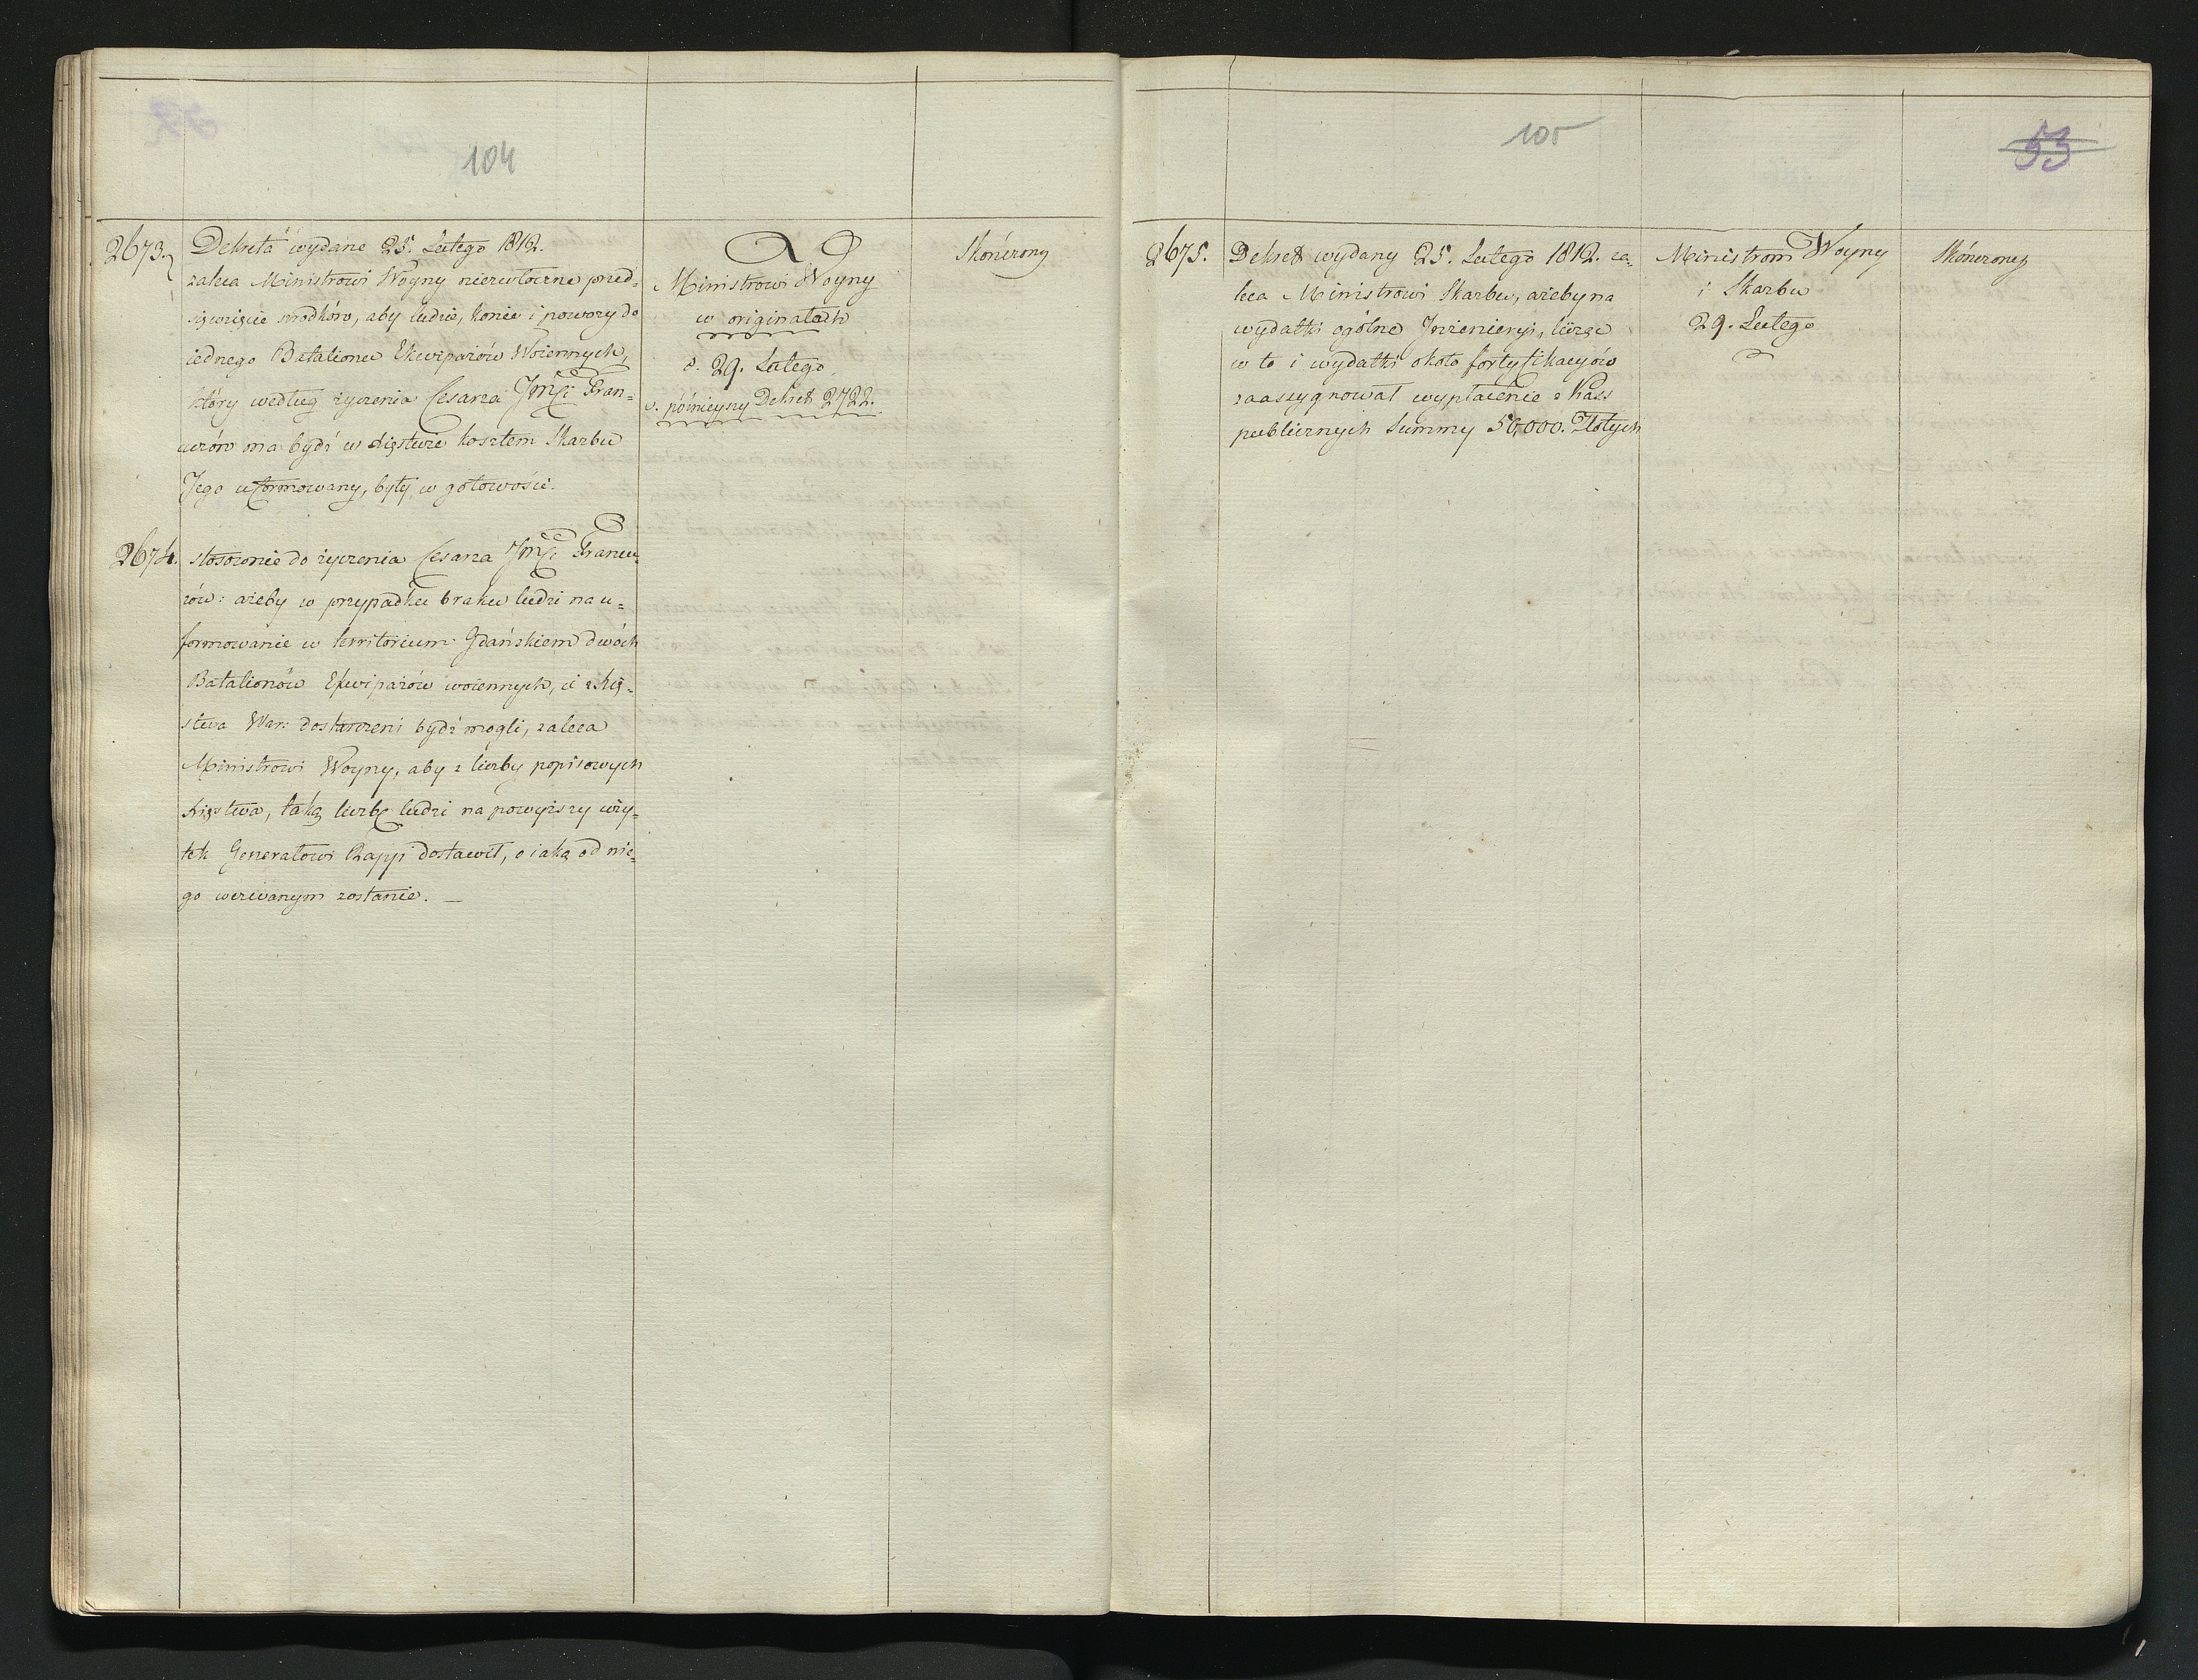 104
2673.
Dekreta wydane 25. Lutego 1812.
zaleca Ministrowi Woyny niezwłoczne przed=
sięwzięcie srodków, aby ludzie, konie i powozy do
iednego Batalionu Ekwipażów Woiennych,
który według życzenia Cesarza JMCi Fran=
cuzów ma bydź w Xięstwie kosztem Skarbu
Jego uformowany, były w gotowości.
Ministrowi Woyny
w originałach
d. 29. Lutego.
v. póżnieyszy Dekret 2722.
Skończony
2674.
stosownie do życzenia Cesarza JMCi Francu=
zów: ażeby w przypadku braku ludzi na u=
formowanie w territorium Gdańskiem dwóch
Batalionów Ekwipażów woiennych, ci z Xię=
stwa War: dostarczeni bydź mogli, zaleca
Ministrowi Woyny, aby z liczby popisowych
Xięstwa, taką liczbę ludzi na powyższy uży=
tek Generałowi Rapp dostawił, o iaką od nie=
go wezwanym zostanie. —
105
53
2675.
Dekret wydany 25. Lutego 1812. za=
leca Ministrowi Skarbu, ażeby na
wydatki ogólne Inżenieryi, licząc
w to i wydatki około fortyfikacyów
zaassygnował wypłacenie z Kass
publicznych Summy 50,000. Złotych
Ministrom Woyny
i Skarbu
29. Lutego
Skończony